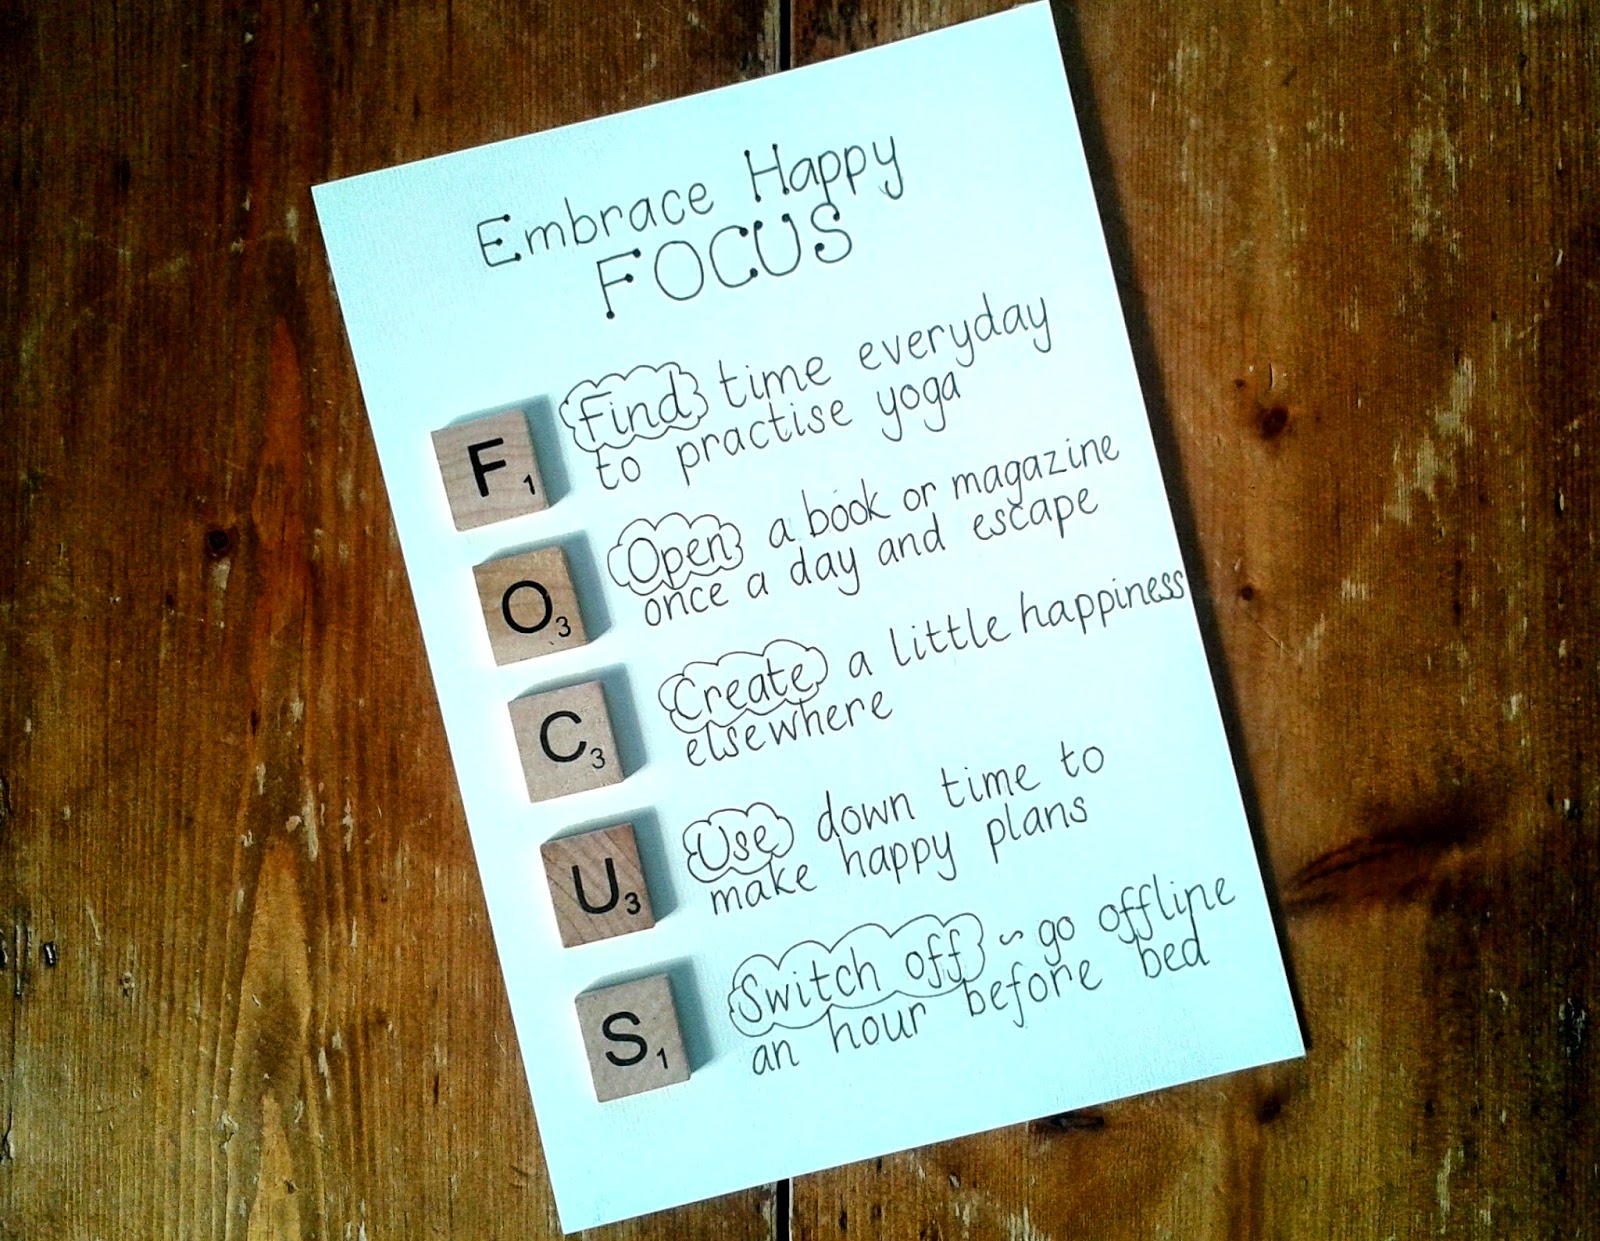 Embrace Happy
FOCUS
F1
Find time everyday
to practise yoga
O3
Open a book or magazine
once a day and escape
C3
Create a little happiness
elsewhere
U3
Use down time to
make happy plans
S1
Switch off ~ go offline
an hour before bed